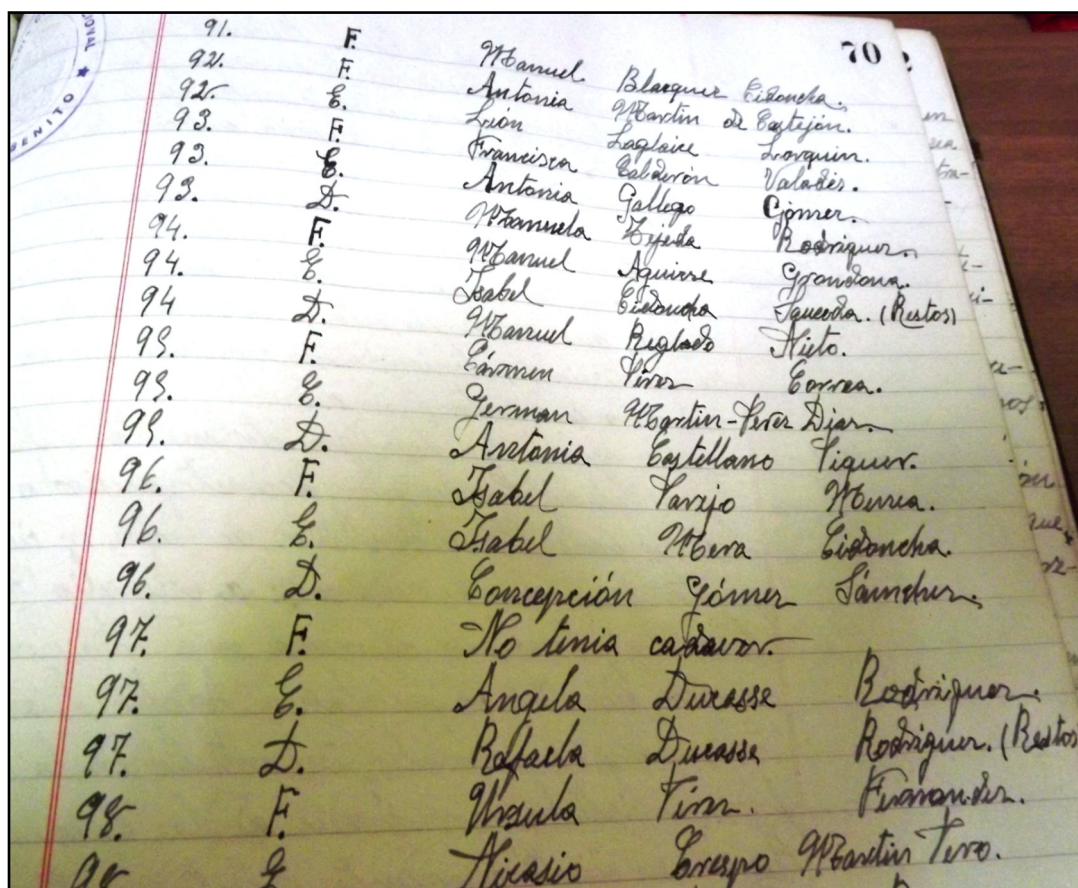 70
BENITO
91. F. Manuel Blazquez Cidoncha.
92. F. Antonia Martin de Castejón.
92. E. Leon Laglaice Lorquin.
93. F. Francisca Calderón Valadés.
93. E. Antonia Gallego Gómez.
93. D. Manuela Tejeda Rodriguez.
94. F. Manuel Aguirre Grondona.
94. E. Isabel Cidoncha Sauceda. (Restos)
94 D. Manuel Reglado Nieto.
95. F. Cármen Pérez Correa.
95. E. German Martin-Perez Diaz.
95. D. Antonia Castellano Piguer.
96. F. Isabel Parejo
96. E. Isabel Mera Cidoncha.
96. D. Concepción Gómez Sánchez.
97. F. No tenia cadaver.
97. E. Angela Ducasse Rodriguez.
97. D. Rafaela Ducasse Rodriguez. (Restos
98. F. Ursula Pérez. Fernandez.
98 E. Nicasio Crespo Martin Pero.